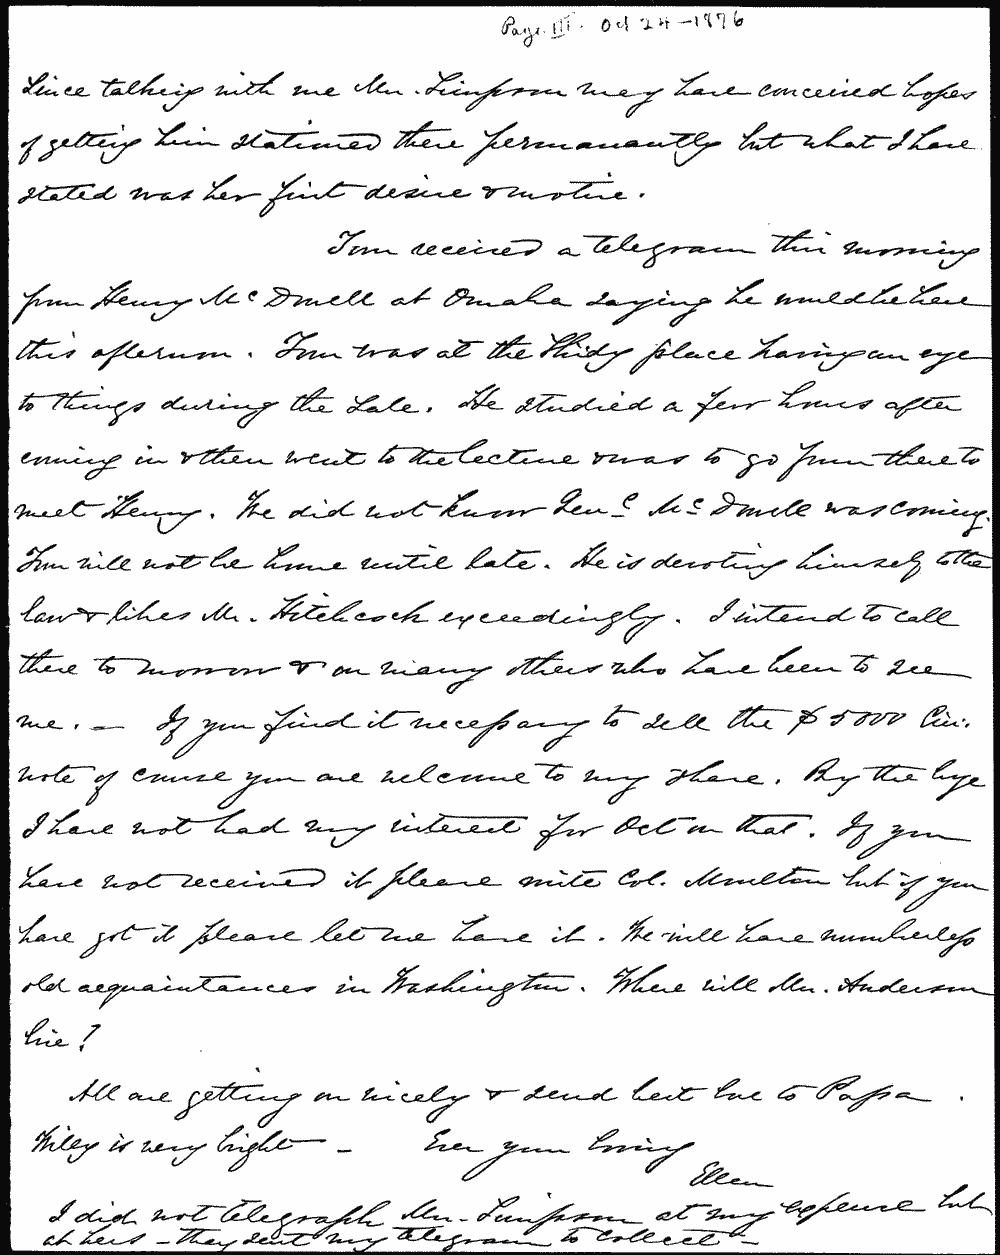 Page III. Oct 24-1876
Since talking with me Mrs. Simpson may have conceived hopes
of getting him stationed there permanantly but what I have
stated was her first desire & motive.
Tom received a telegram this morning
from Henry McDowell at Omaha saying he would be here
this afternoon. Tom was at the place having an eye
to things during the Sale. He studied a few hours after
coming in & then went to the lecture & was to go from there to
meet Henry. We did not know Genl. McDowell was coming.
Tom will not be home until late. He is devoting himself to the
law & likes Mr. Hitchcock exceedingly. I intend to call
there to morrow & on many others who have been to see
me. — If you find it necessary to sell the $5000 Cin.
note of course you are welcome to my share. By the bye
I have not had my interest for Oct on that. If you
have not received it please write Col. Moulton but if you
have got it please let me have it. We will have numberless
old acquaintances in Washington. Where will Mr. Anderson
live?
All are getting on nicely & send best love to Papa.
is very bright — Ever your loving
Ellen
I did not telegraph Mrs. Simpson at my expense but
at hers — they sent my telegram to collect —